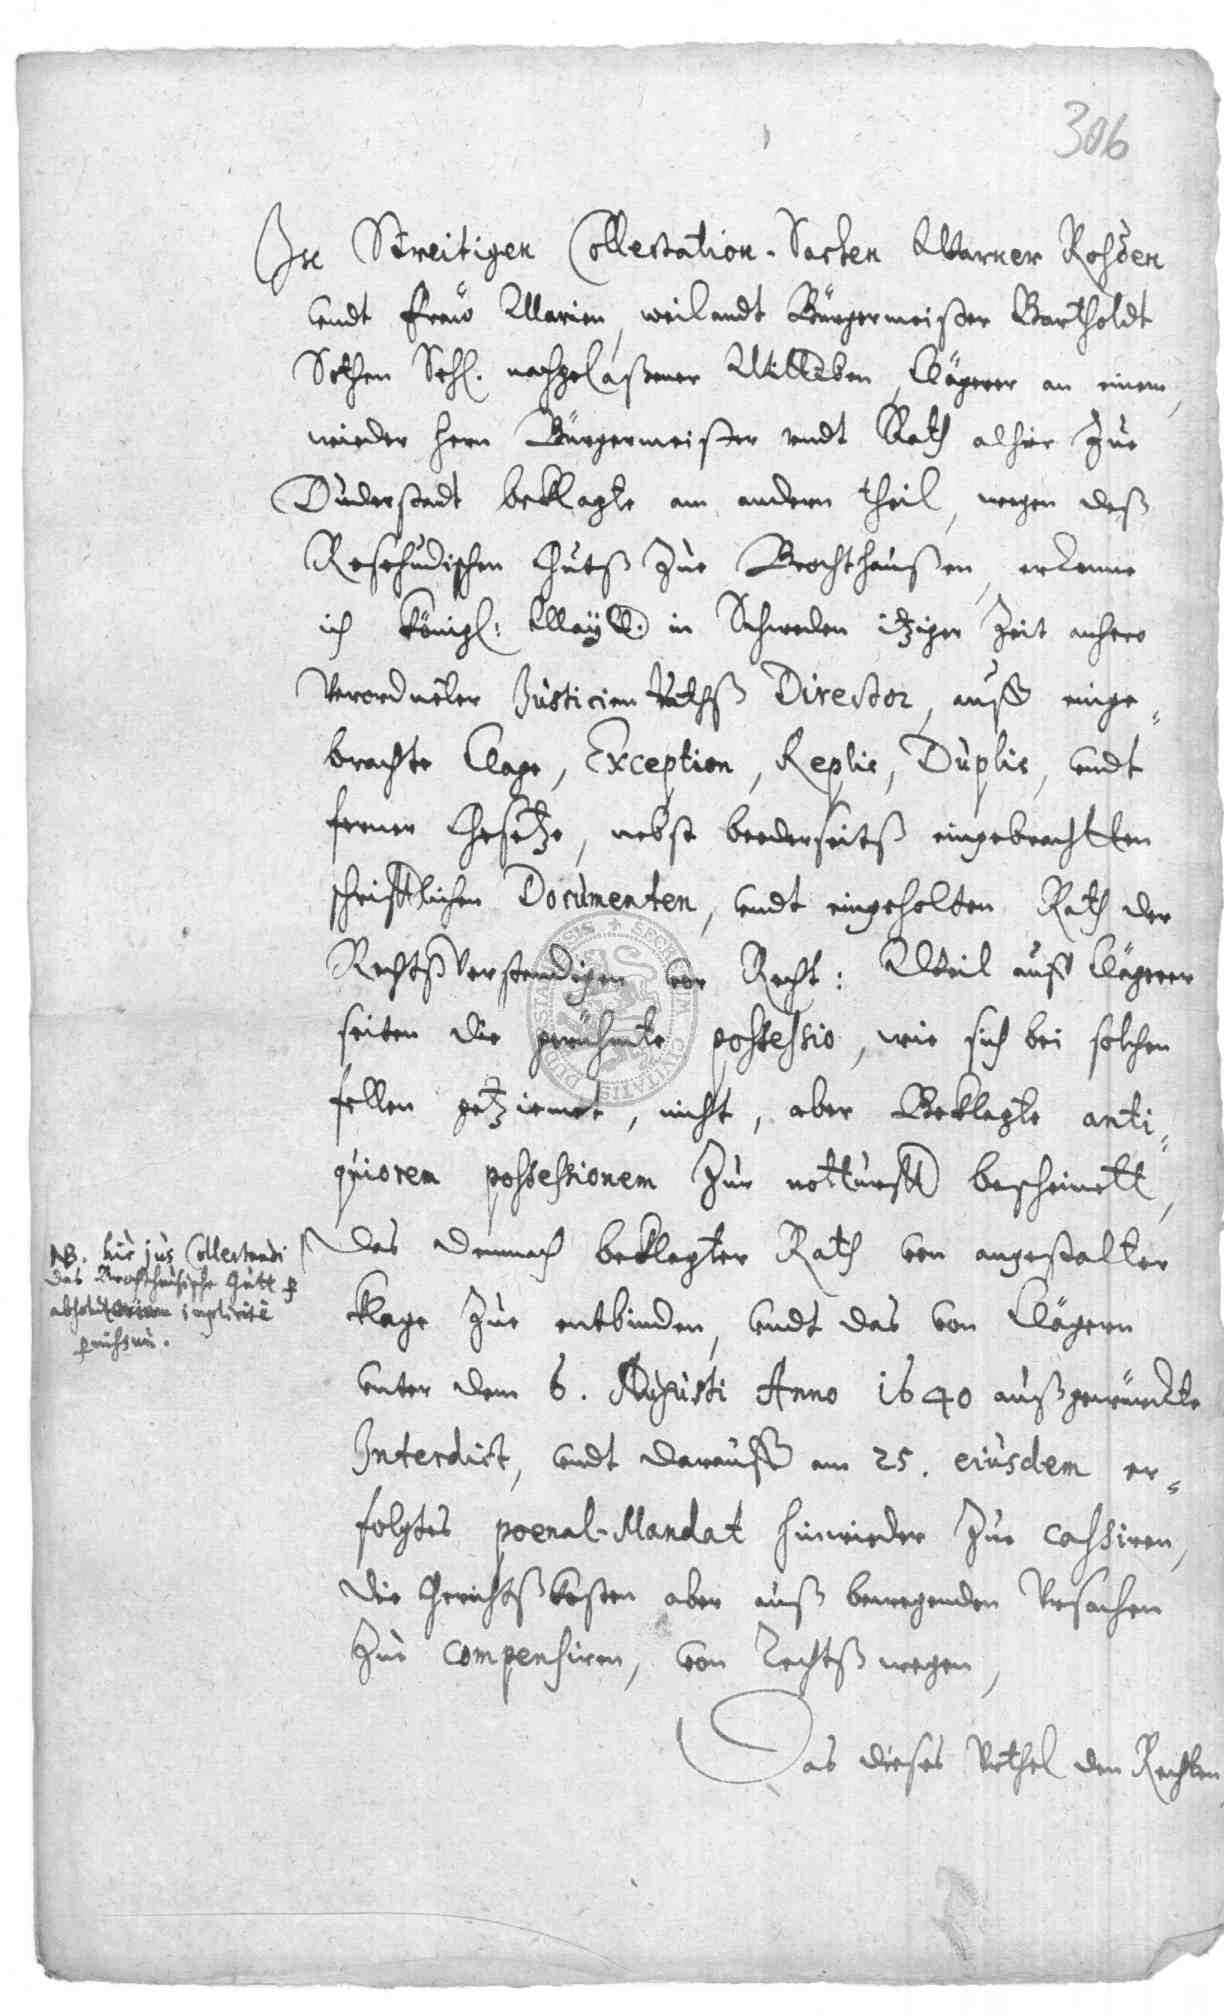 306
In Streitigen Collectation-Sachen Warner Rohden
undt Fraw Marien, weilandt Bürgermeister Bartholdt
Sothen Sehl. nachgelaßener Wittiben, Clägere an einem,
wieder Herrn Bürgermeister undt Rath alhier zue
Duderstadt beklagte am andern theil, wegen deß
Guthß zue Brochthaußen, erkenne
ich Königl: Maytt. in Schweden itziger Zeit anhero
Verordneter Justicien Rathß Director, auff einge=
brachte Clage, Exception, Replic, Duplic, undt
ferner Gesetze, nebst beederseitß eingebrachtten
schrifftlichen Documenten, undt eingeholten Rath der
Rechtßverstendigen vor Recht: Weil auff Clägere
seiten die gerühmte possessio, wie sich bei solchen
fellen getziemet, nicht, aber Beklagte anti=
quiorem possessionem zur notturfft bescheinett,
Das demnach beklagter Rath von angestalter
klage zue entbinden, undt das von Clägern
unter dem 6. Augusti Anno 1640 außgewürckte
Interdict, undt darauff am 25. eiusdem er=
folgtes poenal-Mandat hinwieder zue cassiren,
die Gerichtßkosten aber auß bewegenden Ursachen
zue compensiren, von Rechtß wegen,
Das dieses Urthel den Rechten
NB. hic jus Collectandi
das Brochthausische Gutt
absolutoriam implicite
SECRETUM CIVITATIS